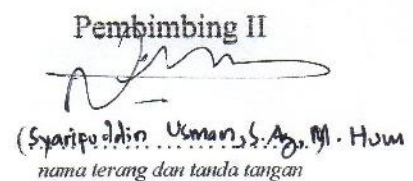 Pembimbing II
(Syaripuddin Usman, S.Ag, M.Hum
nama terang dan tanda tangan